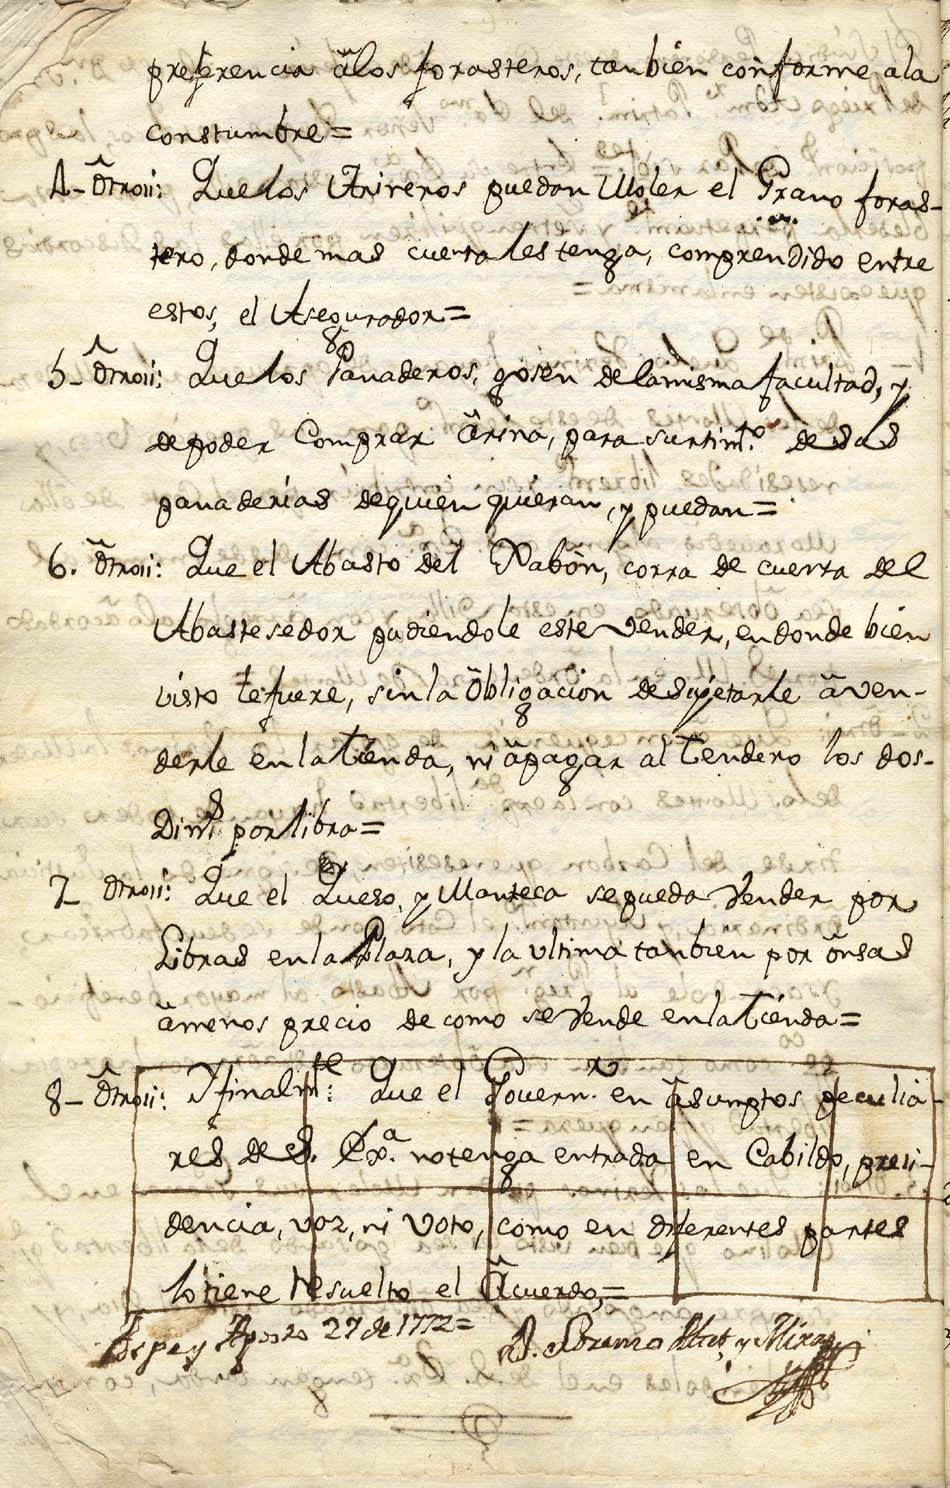 preferencia âlos forasteros, tanbien conforme ala
constumbre=
4- Otrosi: Que los Arrieros puedan Moler el Grano foras-
tero, donde mas cuenta les tenga, comprendido entre
estos, el Asegurador=
5- Otrosi: Que los Panaderos, gosen de la misma facultad, y
de poder Comprar ârina, para surtimto. de sus
panaderias de quien quieran, y puedan=
6. Otrosi: Que el Abasto del Xabon, corra de cuenta del
Abastesedor pudiendole este vender, en donde bien
visto le fuere, sin la Obligacion de sujetarle â ven-
derle en la tienda, ni âpagar al tendero los dos-
Dins por libra=
7- Otrosi: Que el Queso, y Manteca se pueda vender por
Libras en la Plaza, y la ultima tanbien por ônsas
âmenos precio de como se vende en la tienda=
8- Otrosi: Y finalmte: Que el Governr. en âsumptos peculia-
res de S. Exa. no tenga entrada en Cabildo, presi-
dencia, voz, ni voto, como en diferentes partes
lo tiene resuelto el Acuerdo,=
Aspe y Agosto 27 de 1772=
D. y